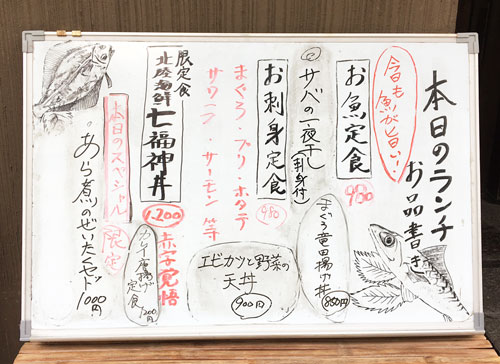 本日のランチ
お品書き
今日も
魚が旨い!
お魚定食
980
まぐろ竜田揚げ丼
850円
サバの一夜干し
(刺身付)
お刺身定食
980
まぐろ・ブリ・ホタテ
サワラ・サーモン等
エビカツと野菜の
天丼
900円
限定食
北陸海鮮
七福神丼
1,200
赤字覚悟
カレイ唐揚げ
定食
1200円
本日のスペシャル
限定
あら煮のぜいたくセット
1000円